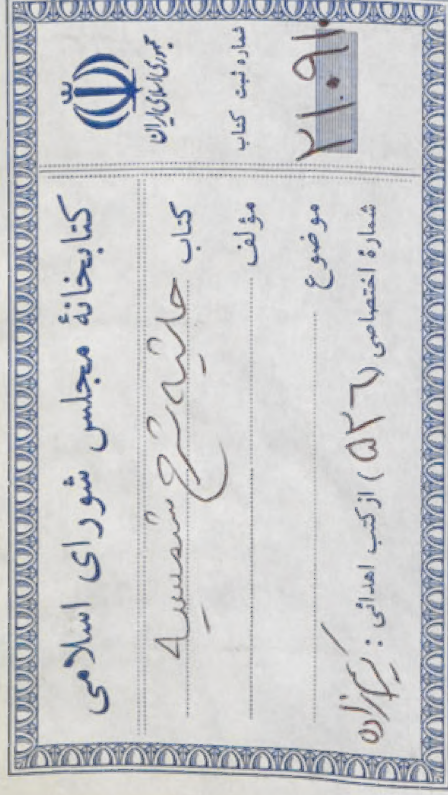 جمهوری اسلامی ایران
شماره ثبت کتاب
۲۱۰۹۱۰
کتابخانهٔ مجلس شورای اسلامی
کتاب حاشیه شرح شمسیه
مؤلف
موضوع
شمارهٔ اختصاصی (۵۲۶) از کتب اهدائی : کریم‌زاده